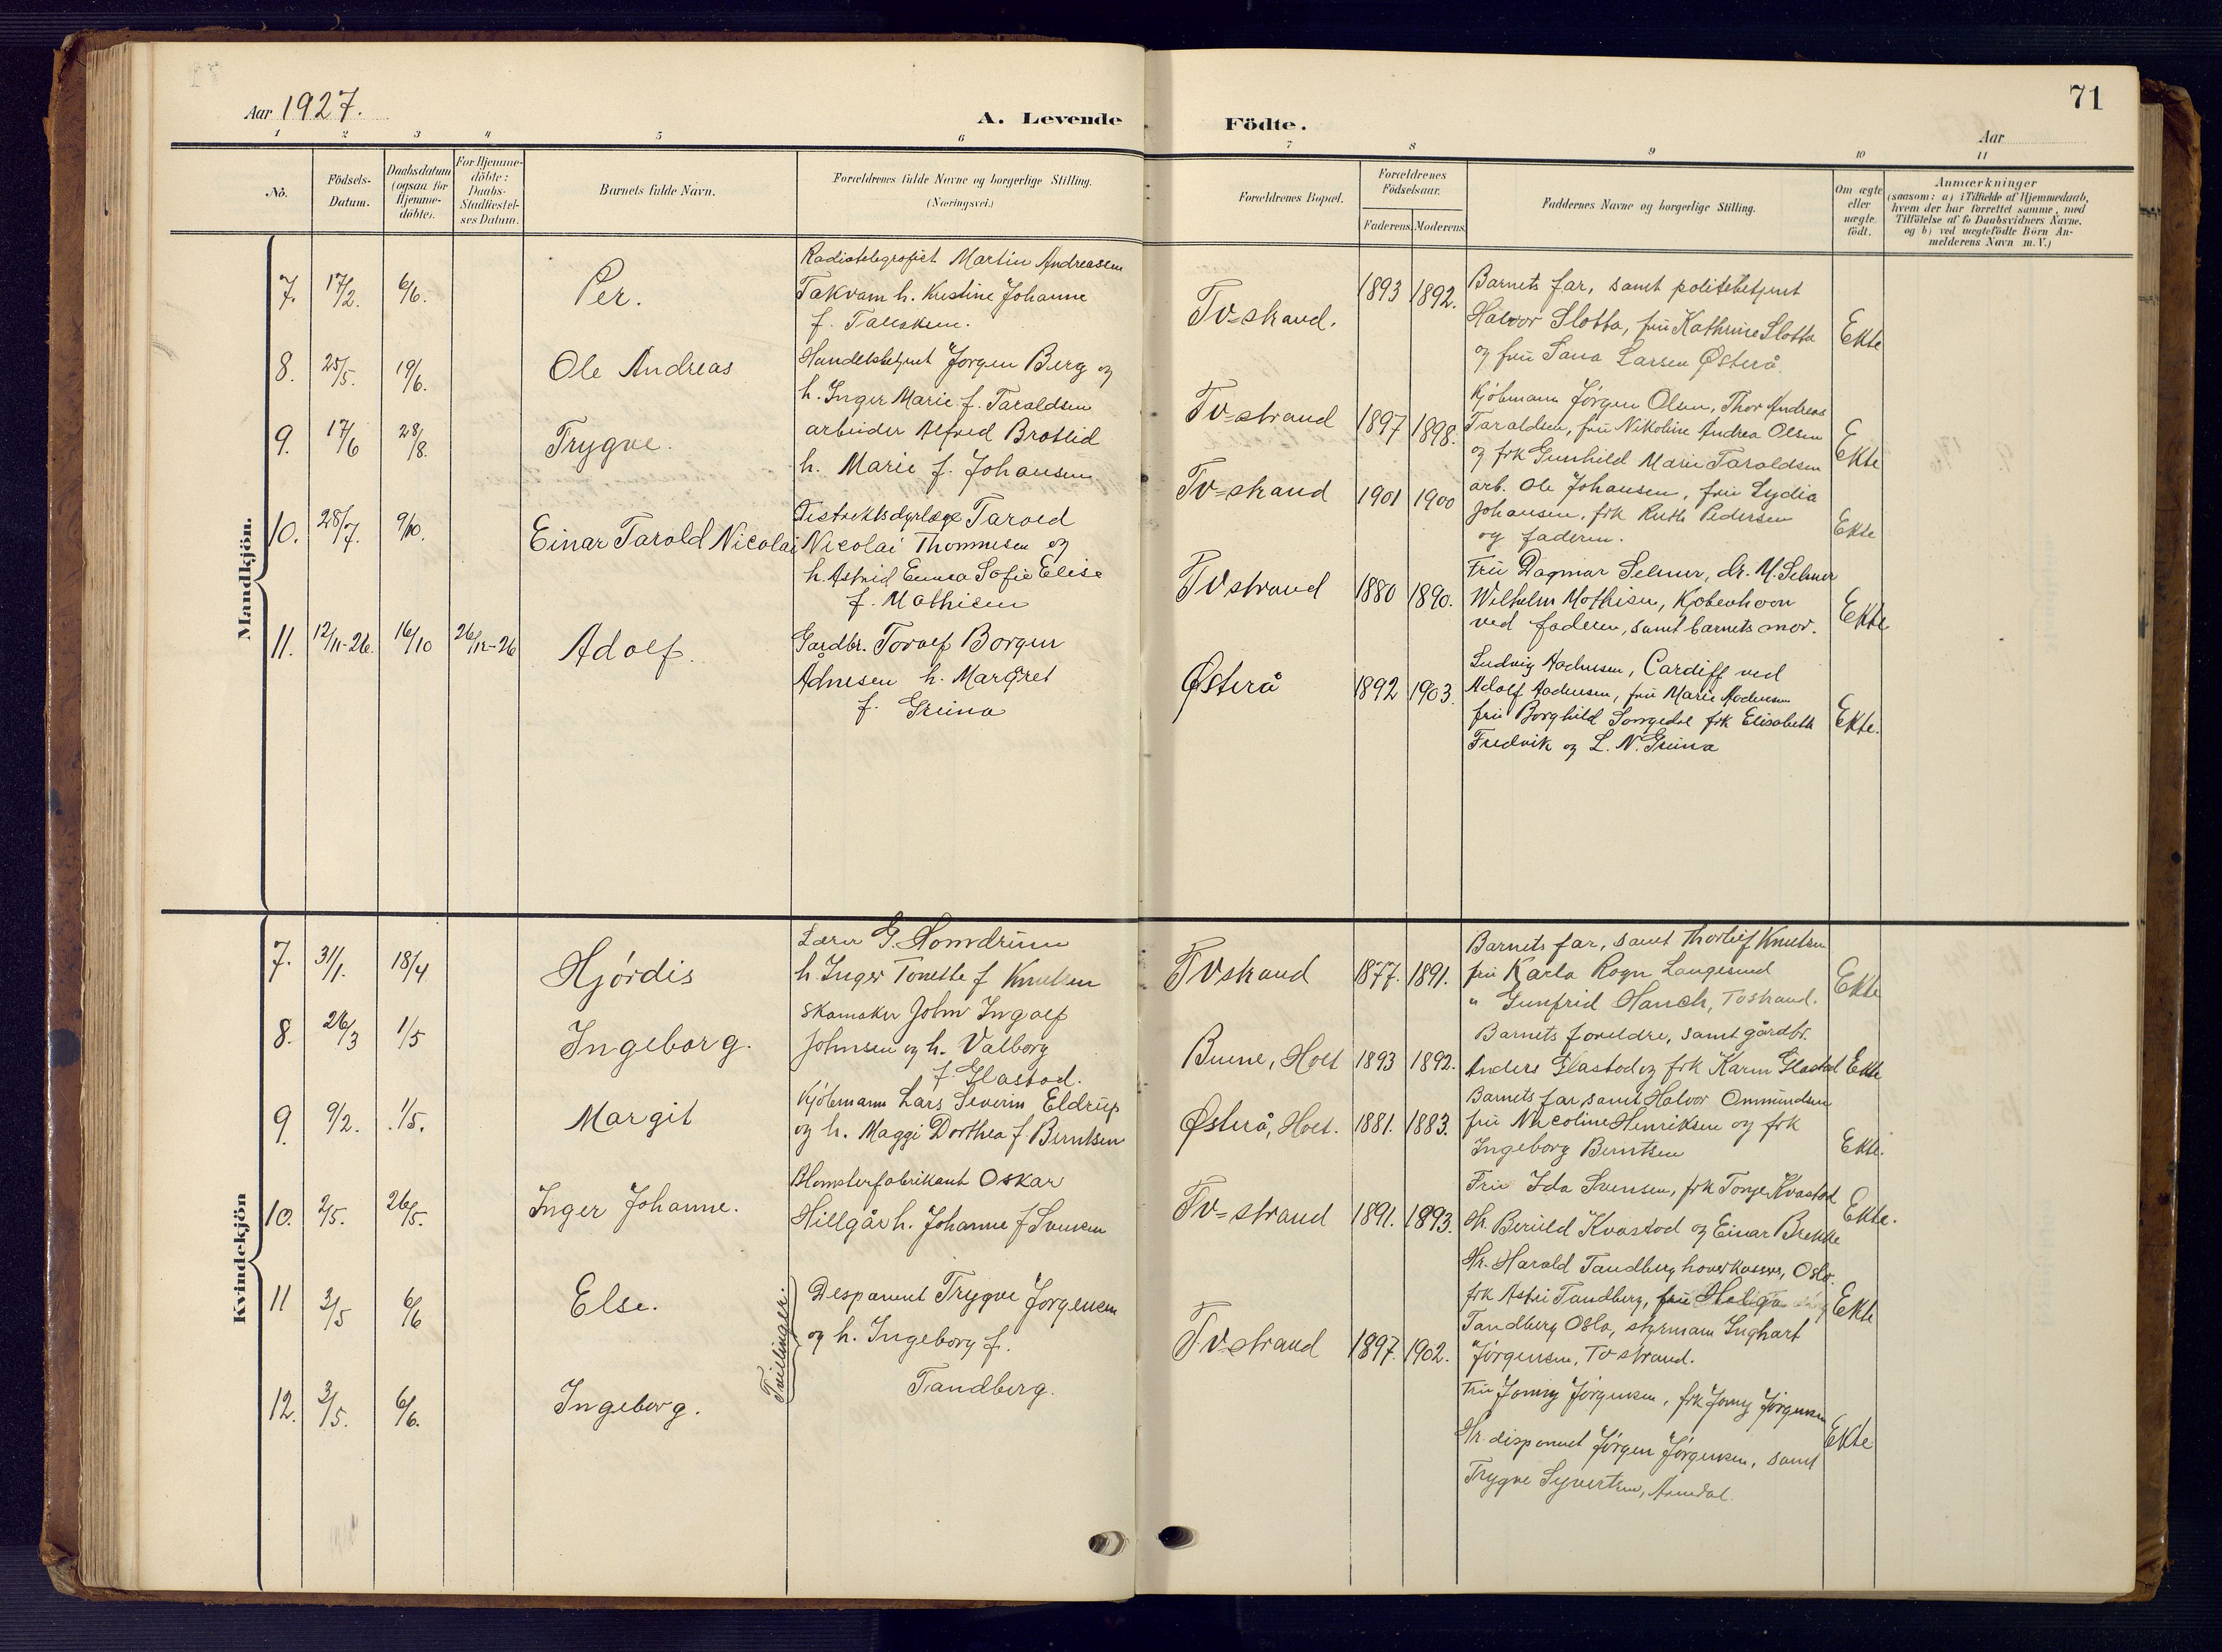 71
Aar 1927.
A. Levende Födte.
Aar
1 2 3 4 5 6 7 8 9 10 11
No.
Födsels-
Datum.
Daabsdatum
(ogsaa for
Hjemme-
döbte).
For Hjemme-
döbte:
Daabs-
Stadfæstel-
ses Datum.
Barnets fulde Navn.
Forældrenes fulde Navne og borgerlige Stilling.
(Næringsvei.)
Forældrenes Bopæl.
Forældrenes
Födselsaar.
Faderens. Moderens.
Faddernes Navne og borgerlige Stilling.
Om ægte
eller
uægte
födt.
Anmærkninger
(saasom: a) i Tilfælde af Hjemmedaab,
hvem der har forrettet samme, med
Tilföielse af to Daabsvidners Navne.
og b) ved uægtefödte Börn An-
melderens Navn m. V.)
Mandkjön.
7. 17/2. 6/6. Per.
Radiotelegrafist Martin Andreasen
Takvam h. Kristine Johanne
f. Tallaksen.
Tv=strand. 1893 1892.
Barnets far, samt politibetjent
Halvor Slotta, frü Kathrine Slotta
og frü Sana Larsen Østerå.
Ekte
8. 25/5. 19/6. Ole Andreas
Handelsbetjent Jørgen Berg og
h. Inger Marie f. Taraldsen
Tv=strand 1897 1898.
Kjöbmann Jørgen Olsen, Thor Andreas
Taraldsen, frü Nikoline Andrea Olsen
og frk Gunhild Marie Taraldsen
Ekte
9. 17/6 28/8. Trygve.
arbeider Alfred Brotlid
h. Marie f. Johansen
Tv=strand 1901 1900
arb. Ole Johansen, frü Lydia
Johansen, frk Ruth Pedersen
og faderen.
Ekte
10. 28/7. 9/10. Einar Tarald Nicolai
Distriktsdyrlæge Tarved
Nicolai Thommesen og
h. Astrid Emma Sofie Elise
f. Mathisen
Tvstrand 1880 1890.
Frü Dagmar Selmer, dr. M. Selmer
Wilhelm Mathisen, Kobenhavn
ved faderen, samt barnets mor.
Ekte
11. 12/11-26. 16/10 26/12-26 Adolf.
Gardbr. Torolf Borgen
Adnesen h. Margret
f. Greina
Østerå 1892 1903.
Ludvig Aadnesen, Cardiff ved
Adolf Aadnesen, frü Marie Aadnesen
frü Borghild Songedal frk Elisabeth
Fredvik og L. N. Greina
Ekte.
Kvindekjön
7. 31/1. 18/4 Hjördis
Lærer G. Homdrum
h. Inger Tonette f Knutsen
Tvstrand 1877. 1891.
Barnets far, samt Thorleif Knutsen
frü Karla Rogn Langesund
" Gunfrid Hanch, Tvstrand.
Ekte
8. 26/3 1/5 Ingeborg.
Skomaker John Ingolf
Johnsen og h. Valborg
f. Glastad.
Buene, Holt 1893 1892.
Barnets foreldre, samt gårdbr.
Anders Glastad og frk Karen Glastad
Ekte
9. 9/2. 1/5. Margit
Kjöbmann Lars Severin Eldrup
og h. Maggi Dorthea f Berntsen
Østerå, Holt. 1881. 1883.
Barnets far samt Halvor Ommundsen
frü Nicoline Henriksen og frk
Ingeborg Berntsen
Ekte.
10. 2/5. 26/5. Inger Johanne.
Blomsterfabrikant Oskar
Hillgår h. Johanne f Svensen
Tv=strand 1891. 1893.
Frü Ida Svensen, frk Tonje Kvastad
Hr. Beruld Kvastad og Einar Brekke
Ekte.
11 3/5 6/6 Else.
Tvillinger.
Desponent Trygve Jörgensen
og h. Ingeborg f.
Tandberg.
Tvstrand 1897. 1902.
Hr. Harald Tandberg hovedkasser, Oslo.
frk Astri Tandberg, frü Helga
Tandberg Oslo, styrmann Inghart
Jörgensen, Tvstrand.
Ekte
12. 3/5. 6/6. Ingeborg.
Frü Jonny Jörgensen, frk Jonny Jörgensen
Hr. disponent Jörgen Jörgensen, samt
Trygve Syvertsen, Arendal.
Ekte